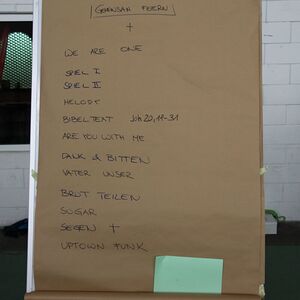 GEMEINSAM FEIERN
WE ARE ONE
SPIEL I
SPIEL II
MELODY
BIBELTEXT Joh 20,11-31
ARE YOU WITH ME
DANK & BITTEN
VATER UNSER
BROT TEILEN
SUGAR
SEGEN
UPTOWN FUNK